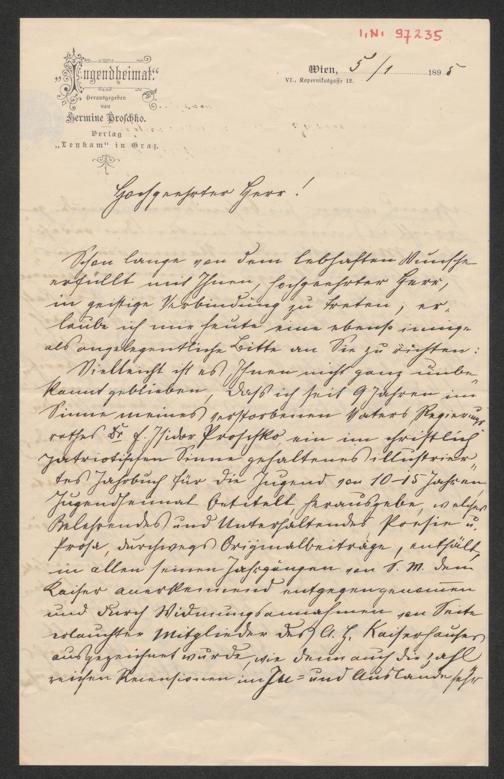 I.N. 97235
„Jugendheimat.“
Herausgegeben
von
Hermine Proschko.
Verlag
„Leykam“ in Graz.
Wien, 5/1 1895
VI., Kopernikusgasse 12.
Hochgeehrter Herr!
Schon lange von dem lebhaften Wunsche
erfüllt mit Ihnen, hochgeehrter Herr,
in geistige Verbindung zu treten, er-
laube ich mir heute eine ebenso innige
als angelegentliche Bitte an Sie zu richten:
Vielleicht ist es Ihnen nicht ganz unbe-
kannt geblieben, daß ich seit 9 Jahren im
Sinne meines verstorbenen Vaters Regierungs
rathes Dr. f. Isidor Proschko ein im christlich
patriotischen Sinne gehaltenes illustrier-
tes Jahrbuch für die Jugend von 10-15 Jahren,
Jugendheimat betitelt, herausgebe, welches
Belehrendes und Unterhaltendes Poesie u.
Prosa, durchwegs Originalbeiträge, enthält,
in allen seinen Jahrgängen von S. M. dem
Kaiser anerkennend entgegengenommen
und durch Widmungsannahmen von Seite
erlauchter Mitglieder des A. h. Kaiserhauses
ausgezeichnet wurde, wie denn auch die zahl
reichen Recensionen im In- und Auslande sehr